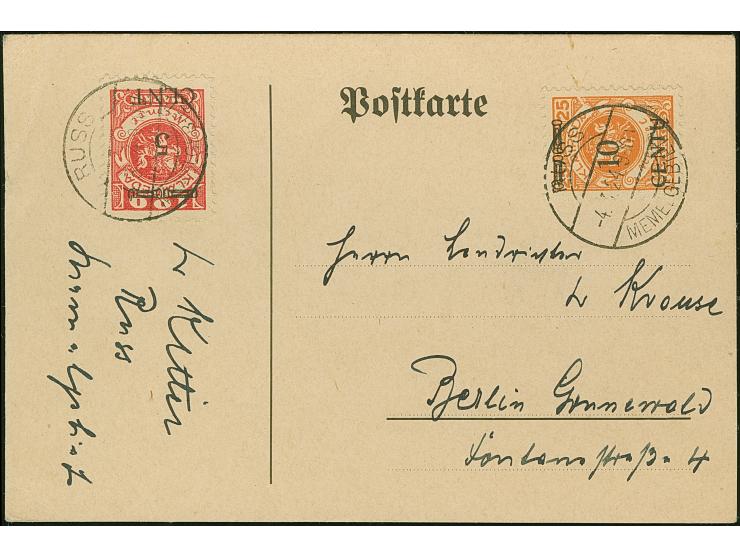 Postkarte
RUSS
CENT
5
25
10
CENTŲ
-4.
MEMELGEBIET
Herrn Landrichter
Dr Krause
Berlin Grunewald
Fontanestraße 4
Dr Kittir
Russ
Memelgebiet